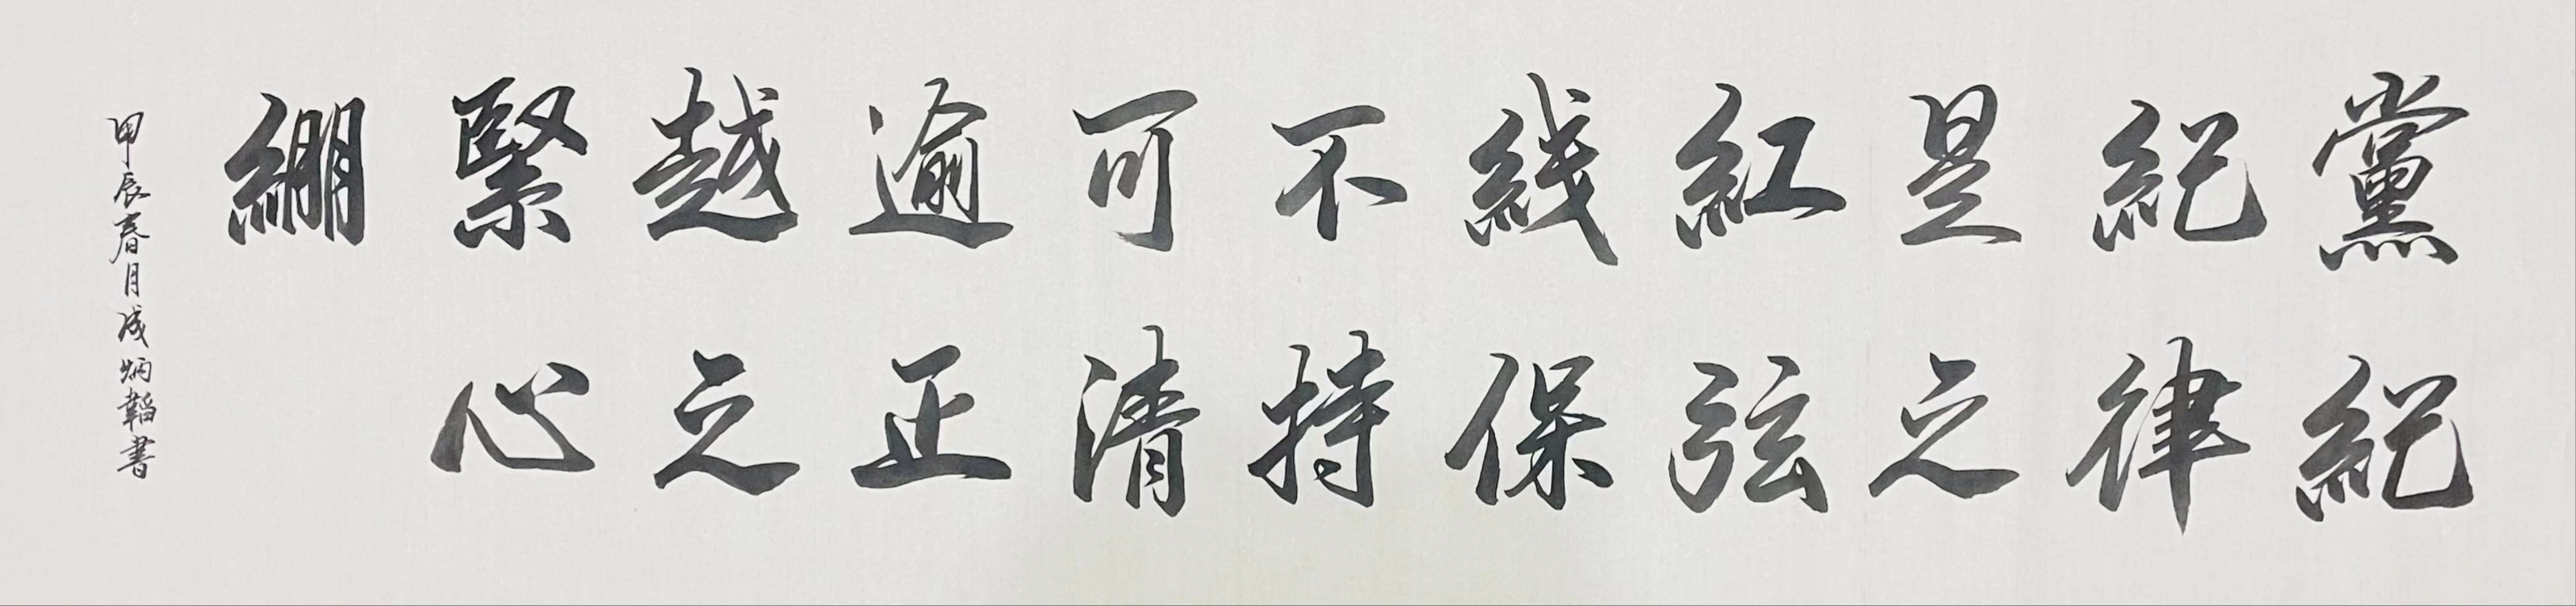 黨紀是紅綫不可逾越緊綳
紀律之弦保持清正之心
甲辰春月成炳韜書